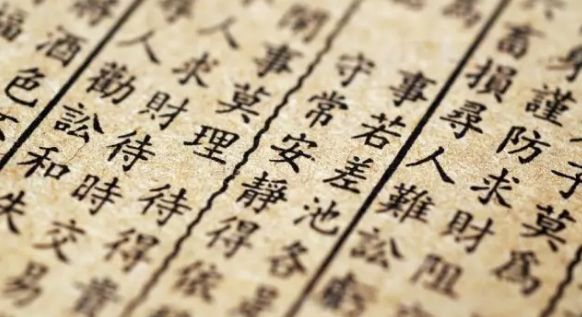 子莫為
身謹防求財阻
畜損尋人難訟
事若差池各
守常安靜得依
事莫理待得貴
人求財待時交易
人勸訟和失
酒色